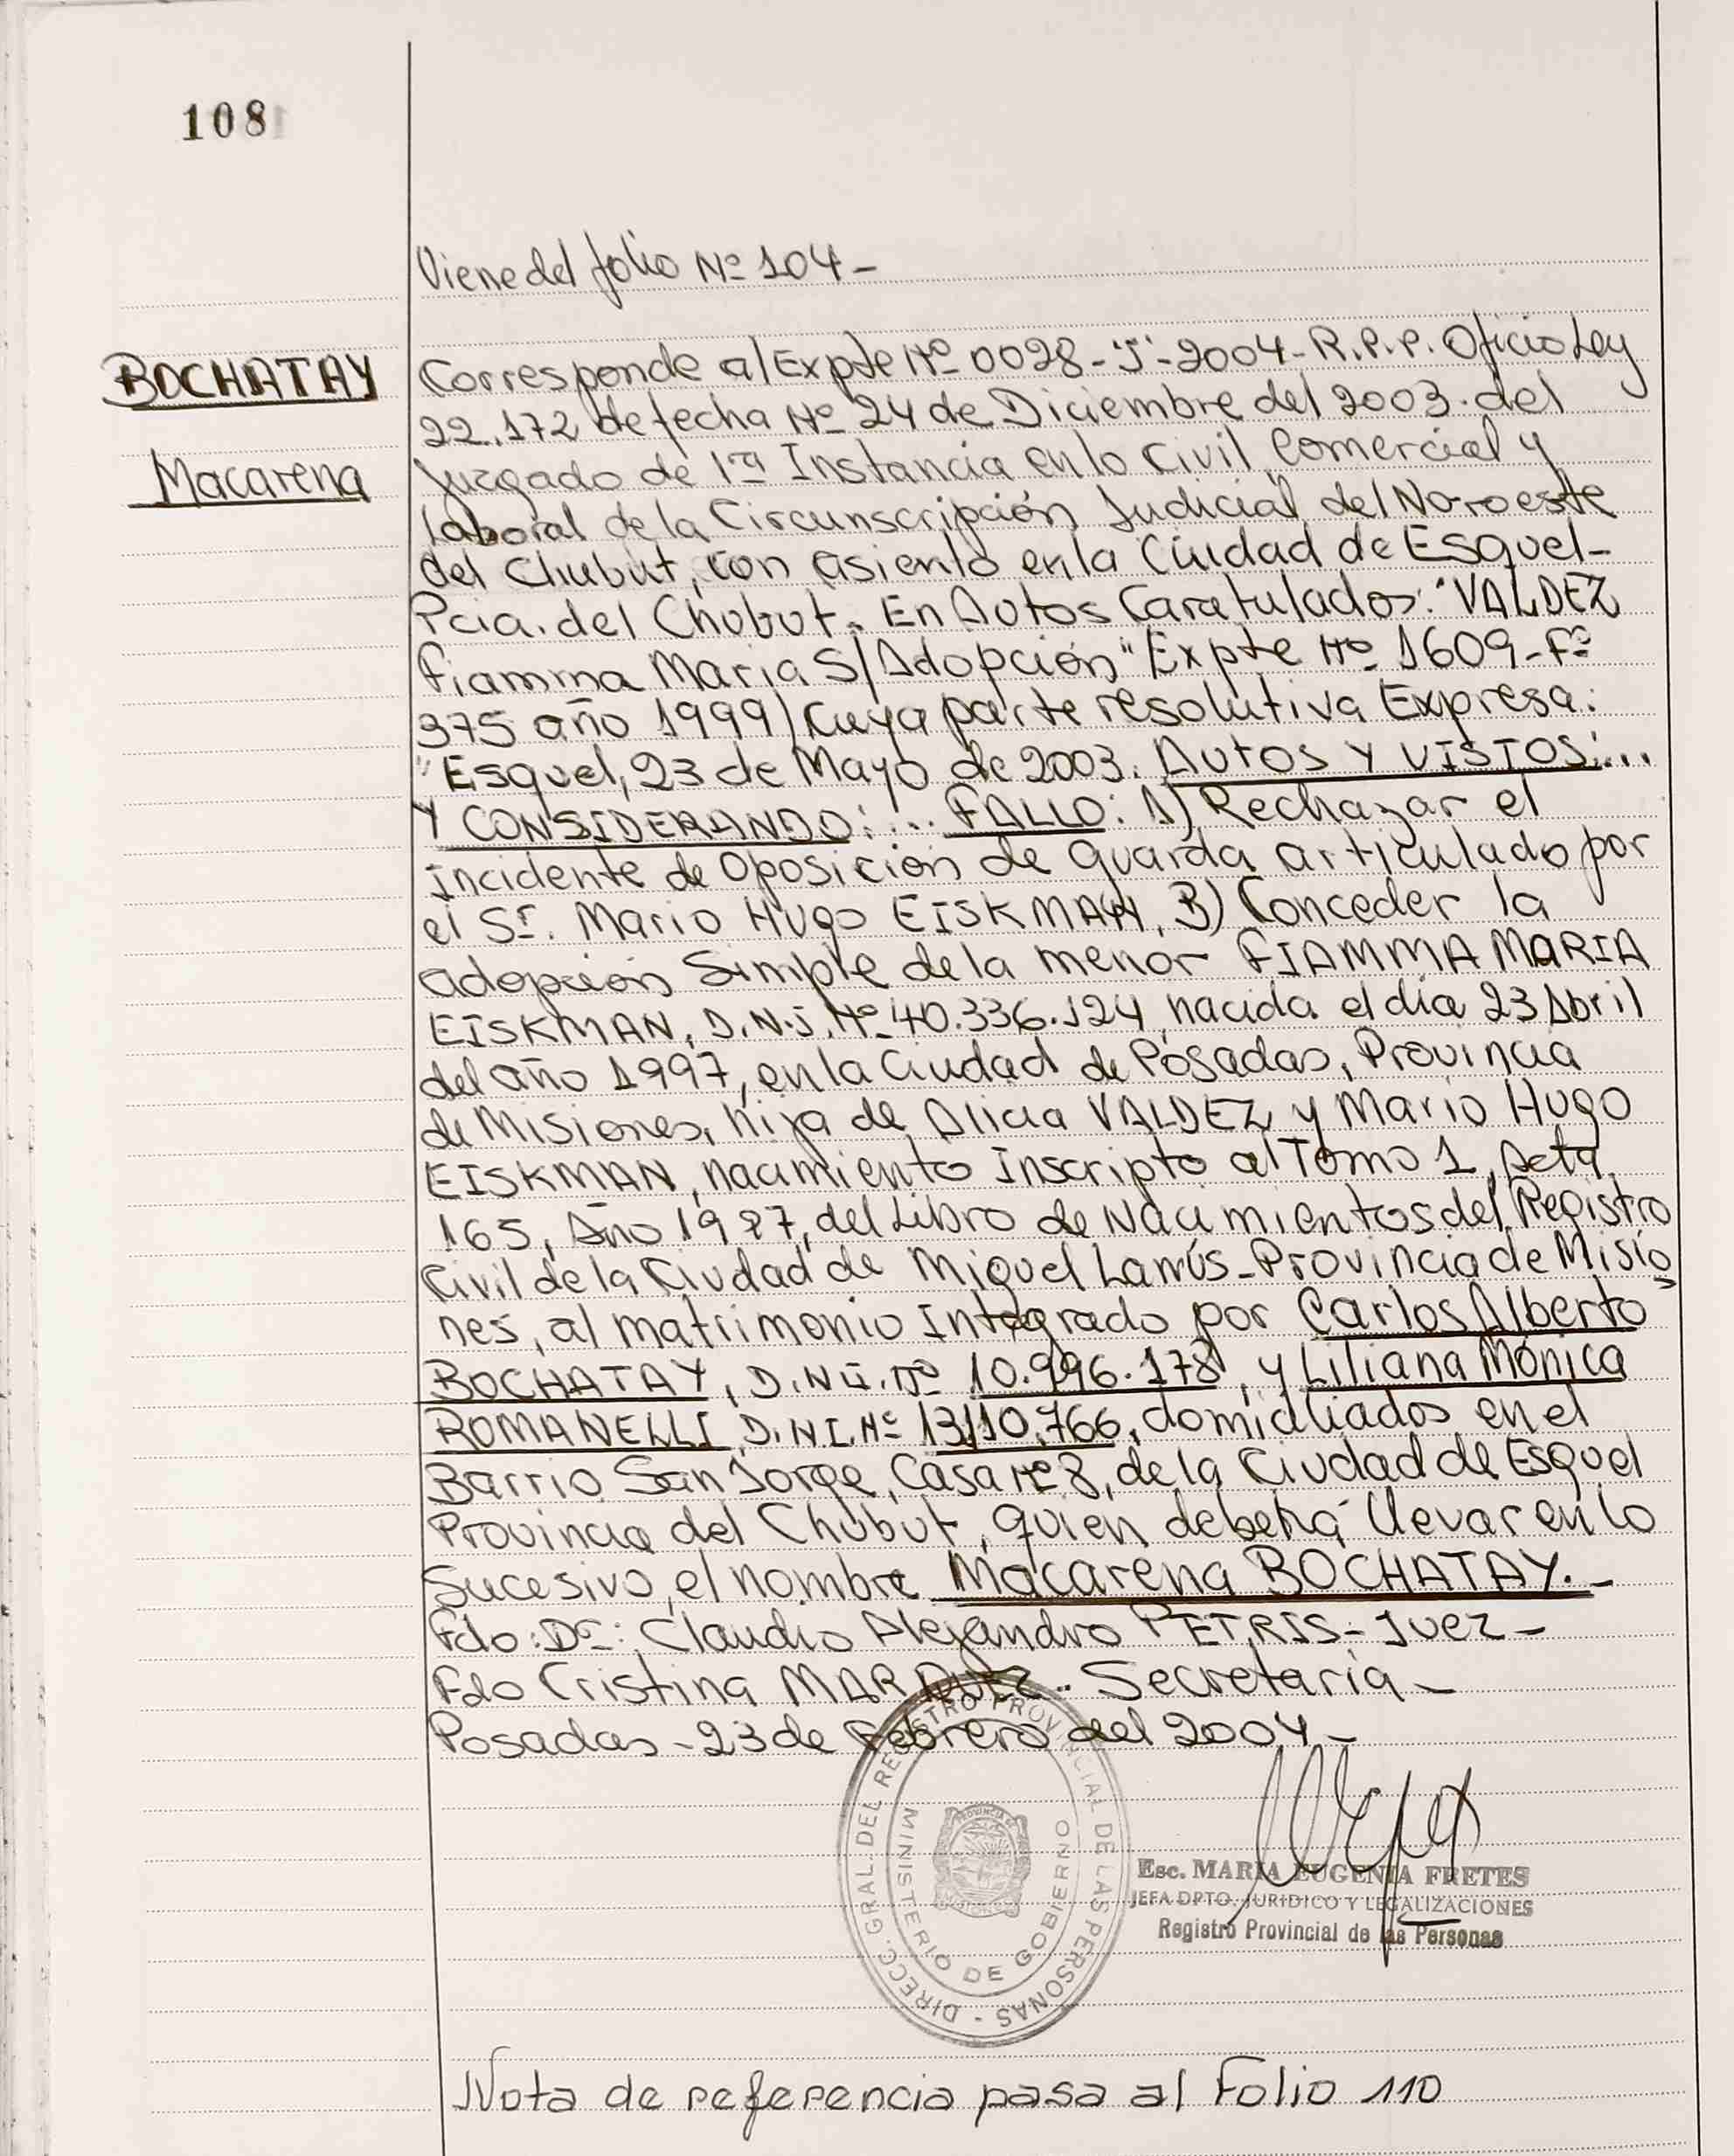 108
Viene del folio Nº 104-
BOCHATAY
Macarena
Corresponde al Expte Nº 0028-"J"-2004-R.P.P. Oficio Ley
22.172 de fecha Nº 24 de Diciembre del 2003. del
Juzgado de 1ra Instancia en lo Civil, Comercial y
Laboral de la Circunscripción Judicial del Noroeste
del Chubut, con asiento en la Ciudad de Esquel-
Pcia. del Chubut. En Autos Caratulados: "VALDEZ
Fiamma Maria S/Adopción" Expte Nº 1609-Fº
375 año 1999) Cuya parte resolutiva Expresa:
"Esquel, 23 de Mayo de 2003. AUTOS Y VISTOS:...
Y CONSIDERANDO:... FALLO: 1) Rechazar el
incidente de Oposición de guarda articulado por
el Sr. Mario Hugo EISKMAN, B) Conceder la
adopción Simple de la menor FIAMMA MARIA
EISKMAN, D.N.J. Nº 40.336.124, nacida el día 23 Abril
del año 1997, en la Ciudad de Posadas, Provincia
de Misiones, hija de Alicia VALDEZ y Mario Hugo
EISKMAN, nacimiento Inscripto al Tomo 1, Acta
165, Año 1997, del Libro de Nacimientos del Registro
Civil de la Ciudad de Miguel Lanús-Provincia de Misio
nes, al matrimonio Integrado por Carlos Alberto
BOCHATAY, D.N.I. Nº 10.996.178, y Liliana Mónica
ROMANELLI, D.N.I. Nº 13.110.766, domiciliados en el
Barrio San Jorge, Casa Nº 8, de la Ciudad de Esquel
Provincia del Chubut, quien deberá llevar en lo
Sucesivo, el nombre Macarena BOCHATAY.-
Fdo: Dr: Claudio Alejandro PETRIS-Juez-
Fdo Cristina MARQUEZ. Secretaria-
Posadas-23 de Febrero del 2004-
DIRECC. GRAL. DEL REGISTRO PROVINCIAL DE LAS PERSONAS -
MINISTERIO DE GOBIERNO
Esc. MARIA EUGENIA FRETES
JEFA DPTO. JURIDICO Y LEGALIZACIONES
Registro Provincial de las Personas
Nota de referencia pasa al Folio 110